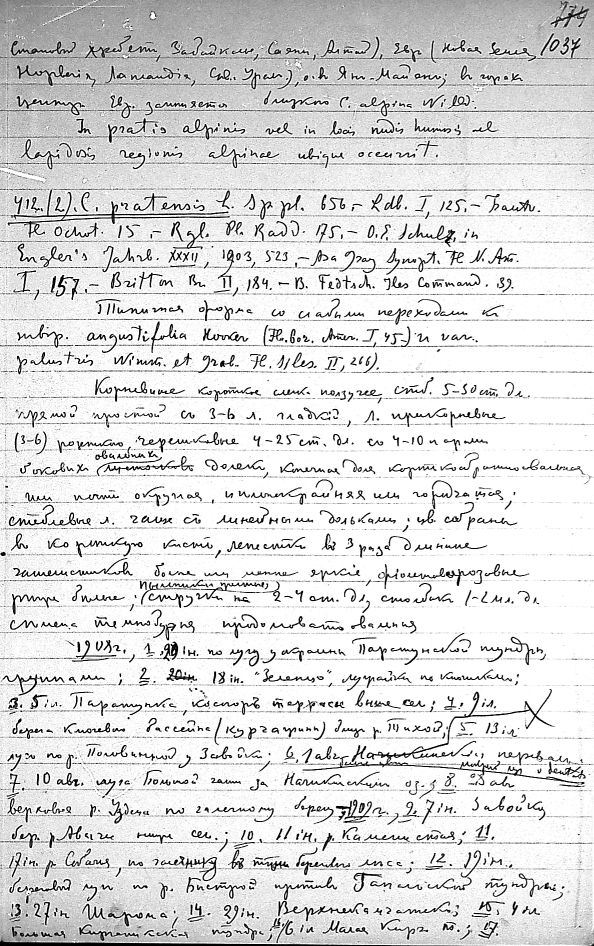 1037
Становой хребет, Забайкалье, Саяны, Алтай), Евр. (Новая Земля,
Норвегия, Лапландия, Сев. Урал), о-в Ян-Майен; в горах
центра Евр. заменяется близкою C. alpina Willd.
In pratis alpinis vel in locis nudis humosis vel
lapidosis regionis alpinae ubique occurrit.
412.(2). C. pratensis L. Sp. pl. 656.- Ldb. I, 125.- Trautv.
Fl. Ochot. 15.- Rgl. Pl. Radd. 175.- O.E. Schulz, in
Engler's Jahrb. XXXII, 1903, 523.- Asa Gray Synopt. Fl. N. Am.
I, 157.- Britton Br. II, 184.- B. Fedtsch. Iles Command. 39.
Типичная форма со слабыми переходами к
var. angustifolia Hooker (Fl. bor. Amer. I, 45-) и var.
palustris Wimm. et Grab. Fl. Siles. II, 266).
Корневище короткое слегка ползучее, стб. 5-30 ст. дл.
прямой простой с 3-6 л. гладкий, л. прикорневые
(3-6) розеткою, черешковые 4-25 ст. дл. с 4-10 парами
боковых овальных долек, конечная доля коротко овальная,
или почти округлая, цельнокрайняя или городчатая;
стеблевые л. чаще с линейными дольками; цв. собраны
в короткую кисть, лепестки в 3 раза длиннее
чашелистиков более или менее яркие, фиолетоворозовые
реже белые; стручки 2-4 ст. дл., столбик 1-2 мл. дл.
семена темнобурые продолговатоовальные
1908 г., 1. ін. по лугу у окраины Паратунской тундры,
группами; 2. 18 ін. "Зеленцо", лужайки по кочкам;
3. 5 іл. Паратунка, косогор террасы выше сел.; 4. 9 іл.
берега Ключевого бассейна (Курчажин) близ р. Тихой; 5. 13 іл.
луг по р. Половинной у Завойко; 6. 1 авг. перевал.
7. 10 авг. луга Толмой за Начикинским оз.; 8. авг.
верховья р. Уздеца по галечному берегу; 1909 г., 9. 7 ін. Завойко
бер. р. Авачи ниже сел.; 10. 11 ін. р. Каменистая; 11.
17 ін. р. Собачья, по березового леса; 12. 19 ін.
березовый луг по р. Быстрой против Ганальской тундры;
13. 27 ін. Шарома; 14. 29 ін. Верхнекамчатск; 15. 4 іл.
Большая Кирганикская тундра; 16. 6 ін. Малая Кирг. т.; 17.